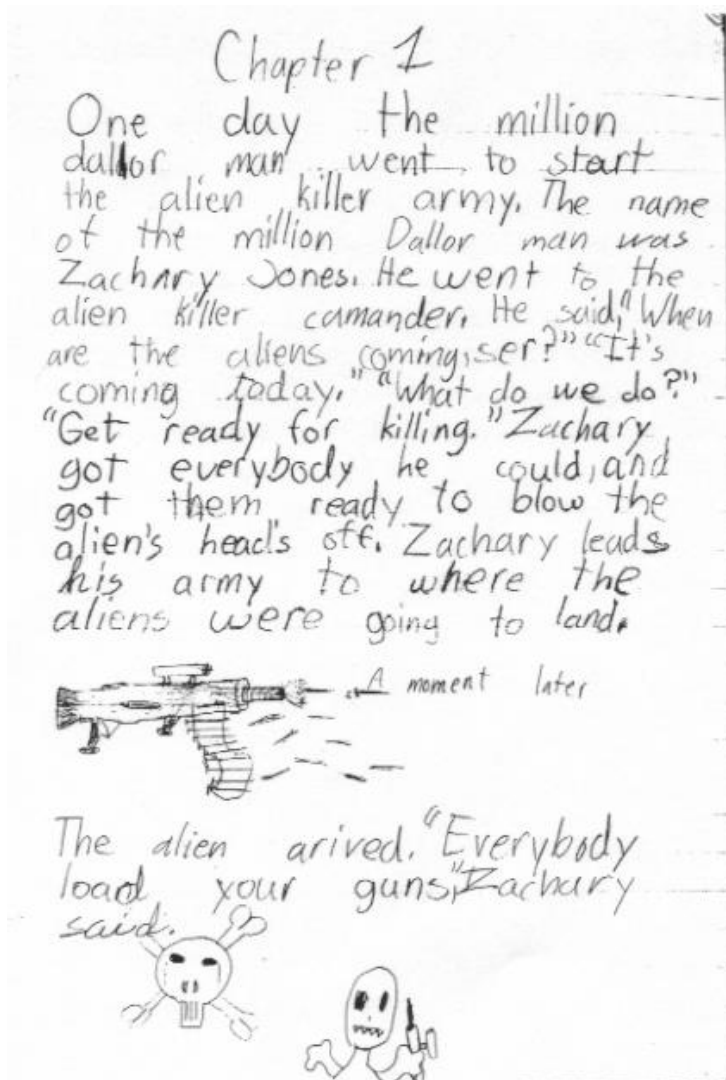 Chapter 1
One day the million
dallor man went to start
the alien killer army. The name
of the million Dallor man was
Zachary Jones. He went to the
alien killer camander. He said, "When
are the aliens coming, ser?" "It's
coming today." "What do we do?"
"Get ready for killing." Zachary
got everybody he could, and
got them ready to blow the
alien's head's off. Zachary leads
his army to where the
aliens were going to land.
A moment later
The alien arived. "Everybody
load your guns," Zachary
said.